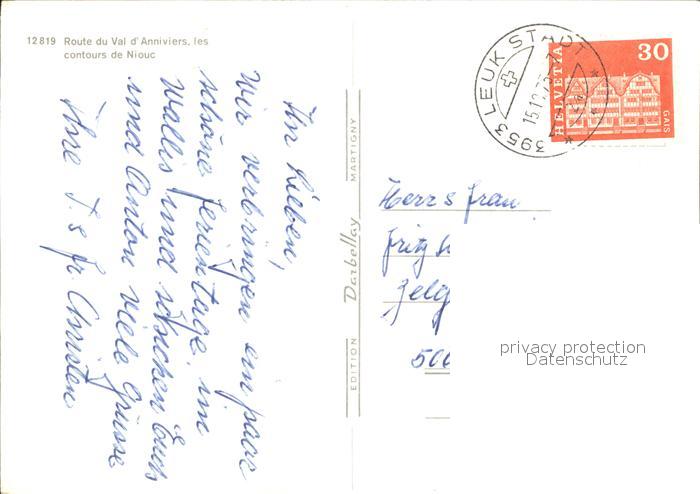 12819 Route du Val d'Anniviers, les
contours de Niouc
Ihr Lieben,
Wir verbringen ein paar
schöne Ferientage im
Wallis und schicken Euch
und Anton viele Grüsse
Ihre F. & Fr. Christen
EDITION Darbellay MARTIGNY
3953 LEUK STADT
HELVETIA
30
GAIS
Herr & Frau
Fritz
privacy protection
Datenschutz